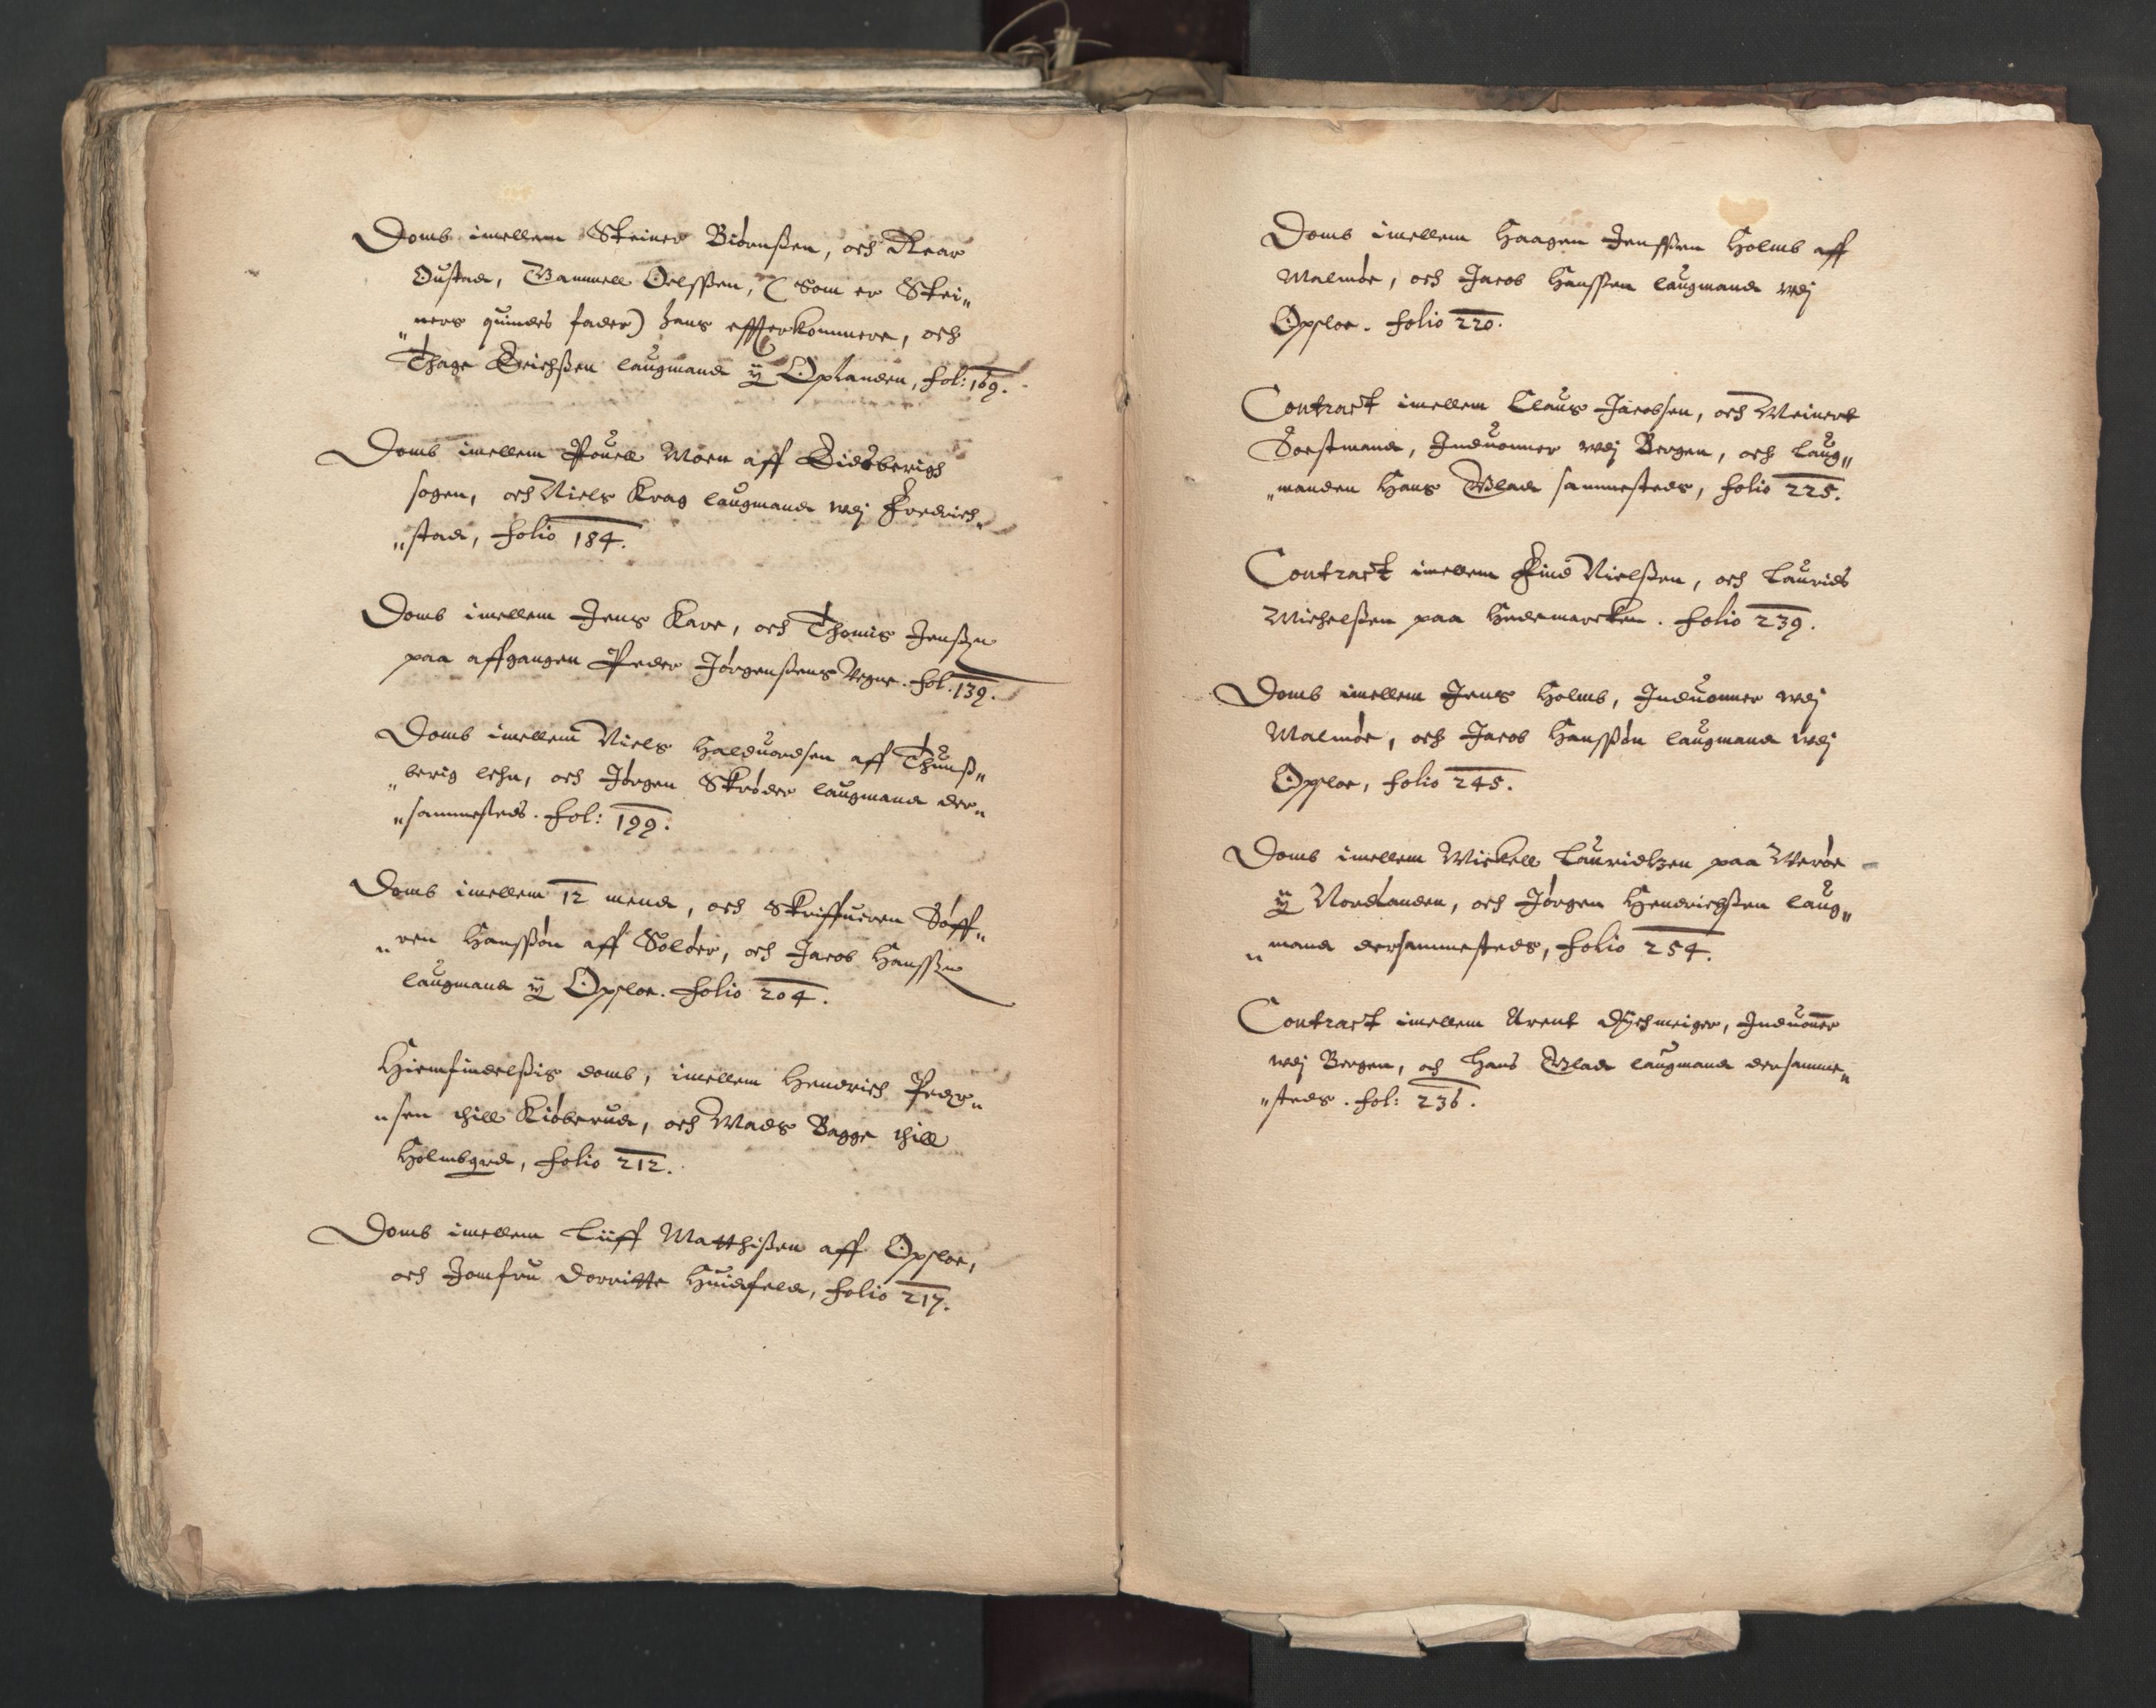 Domb imellem Steiner Biørnßen, och Roar
Oustad, Gammell Oelssen, (Som er Stei„
„ners quindes fader) hans effterkommere, och
Thage Erichßen laugmand ÿ Oplanden, fol: 169.
Domb imellem Pouell Moen aff Eidsberigh
sogen, och Niels Krag laugmand wdj Fredrich„
„stad, folio 184.
Domb imellem Jens Kare, och Thomis Jenßen
paa affgangen Peder Jørgenßens Vegne. fol. 139.
Domb imellem Niels Halduordsen aff Thunß„
„berig lehn, och Jørgen Skrøder laugmand der„
„sammesteds. fol: 199.
Domb imellem 12 mend, och Skriffueren Søff„
„ren Hanssøn aff Soløer, och Jacob Hanssen
laugmand ÿ Opsloe. folio 204.
Hiemfindelßis domb, imellem Hendrich Peder„
„sen thill Kiøberud, och Mads Bagge thill
Holmbgrd, folio 212.
Domb imellem Liiff Matthißen aff Opsloe,
och Jomfru Dorritte Huidfeld, folio 217.
Domb imellem Haagen Jenssen Holmb aff
Malmøe, och Jacob Hanssen laugmand wdj
Opsloe. folio 220.
Contract imellem Claus Jacobsen, och Meinert
Soestmand, Induoner wdj Bergen, och Laug„
„manden Hans Glad sammesteds, folio 225.
Contract imellem Find Nielßen, och Laurids
Michelßen paa Hedemarcken. folio 239.
Domb imellem Jens Holmb, Induoner wdj
Malmøe, och Jacob Hanssøn laugmand wdj
Opsloe, folio 245.
Domb imellem Mickell Lauridtzen paa Werøe
ÿ Nordlanden, och Jørgen Hendrichßen laug„
„mand dersammesteds, folio 254.
Contract imellem Arent Dÿchmeiger, Induoner
wdj Bergen, och Hans Glad laugmand dersamme„
„steds. fol: 236.